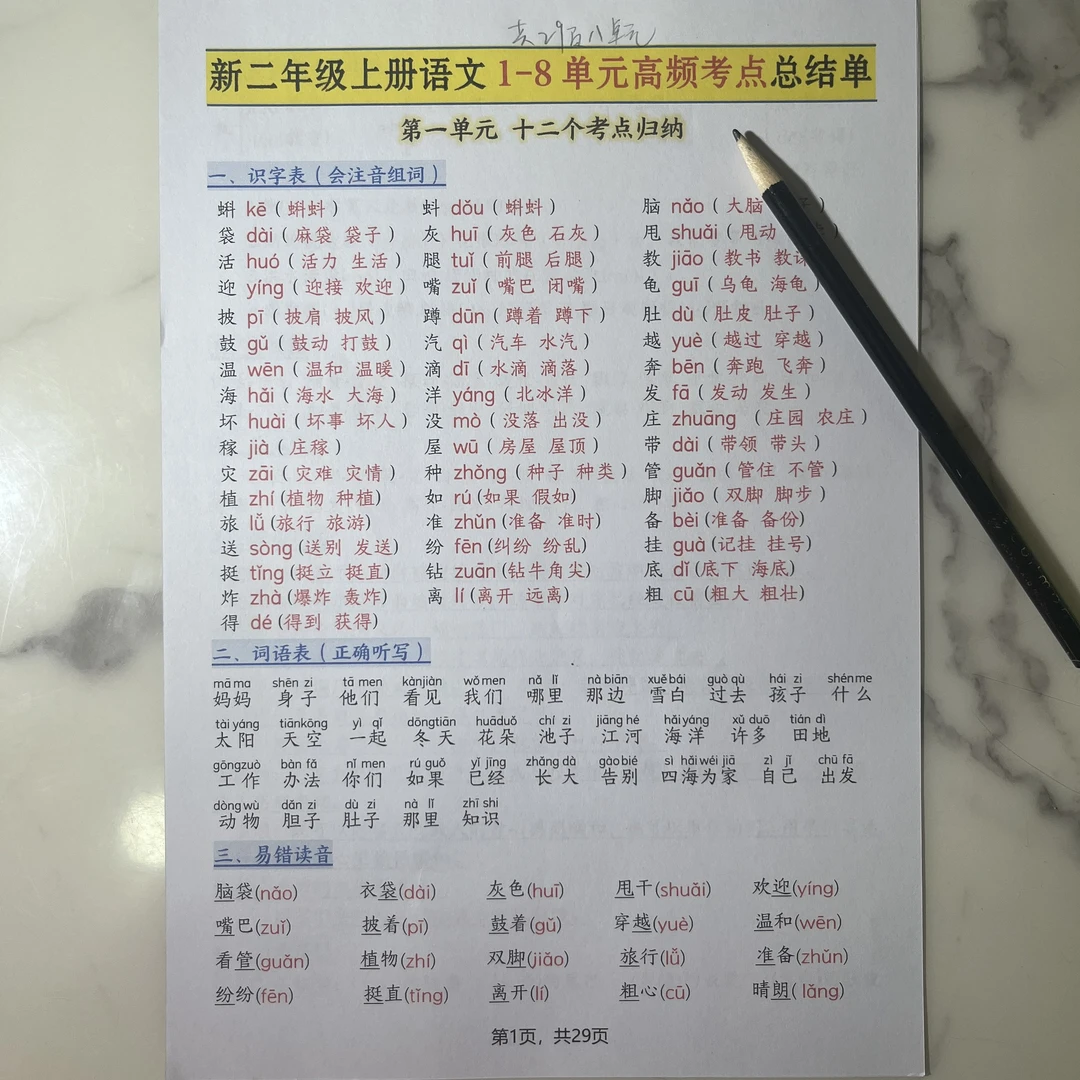 共29页八单元
新二年级上册语文1-8单元高频考点总结单
第一单元 十二个考点归纳
一、识字表（会注音组词）
蝌 kē（蝌蚪） 蚪 dǒu（蝌蚪） 脑 nǎo（大脑
袋 dài（麻袋 袋子） 灰 huī（灰色 石灰） 甩 shuǎi（甩动
活 huó（活力 生活） 腿 tuǐ（前腿 后腿） 教 jiāo（教书 教课
迎 yíng（迎接 欢迎） 嘴 zuǐ（嘴巴 闭嘴） 龟 guī（乌龟 海龟）
披 pī（披肩 披风） 蹲 dūn（蹲着 蹲下） 肚 dù（肚皮 肚子）
鼓 gǔ（鼓动 打鼓） 汽 qì（汽车 水汽） 越 yuè（越过 穿越）
温 wēn（温和 温暖） 滴 dī（水滴 滴落） 奔 bēn（奔跑 飞奔）
海 hǎi（海水 大海） 洋 yáng（北冰洋） 发 fā（发动 发生）
坏 huài（坏事 坏人） 没 mò（没落 出没） 庄 zhuāng （庄园 农庄）
稼 jià（庄稼） 屋 wū（房屋 屋顶） 带 dài（带领 带头）
灾 zāi（灾难 灾情） 种 zhǒng（种子 种类） 管 guǎn（管住 不管）
植 zhí(植物 种植) 如 rú(如果 假如) 脚 jiǎo（双脚 脚步）
旅 lǚ(旅行 旅游) 准 zhǔn(准备 准时) 备 bèi(准备 备份)
送 sòng(送别 发送) 纷 fēn(纠纷 纷乱) 挂 guà(记挂 挂号)
挺 tǐng(挺立 挺直) 钻 zuān(钻牛角尖) 底 dǐ(底下 海底)
炸 zhà(爆炸 轰炸) 离 lí(离开 远离) 粗 cū（粗大 粗壮）
得 dé(得到 获得)
二、词语表（正确听写）
mā ma shēn zi tā men kànjiàn wǒ men nǎ lǐ nà biān xuě bái guò qù hái zi shén me
妈妈 身子 他们 看见 我们 哪里 那边 雪白 过去 孩子 什么
tài yáng tiānkōng yì qǐ dōngtiān huāduǒ chí zi jiāng hé hǎi yáng xǔ duō tián dì
太阳 天空 一起 冬天 花朵 池子 江河 海洋 许多 田地
gōngzuò bàn fǎ nǐ men rú guǒ yǐ jīng zhǎng dà gào bié sì hǎi wéi jiā zì jǐ chū fā
工作 办法 你们 如果 已经 长大 告别 四海为家 自己 出发
dòng wù dǎn zi dù zi nà lǐ zhī shi
动物 胆子 肚子 那里 知识
三、易错读音
脑袋(nǎo) 衣袋(dài) 灰色(huī) 甩干(shuǎi) 欢迎(yíng)
嘴巴(zuǐ) 披着(pī) 鼓着(gǔ) 穿越(yuè) 温和(wēn)
看管(guǎn) 植物(zhí) 双脚(jiǎo) 旅行(lǚ) 准备(zhǔn)
纷纷(fēn) 挺直(tǐng) 离开(lí) 粗心(cū) 晴朗( lǎng)
第1页，共29页